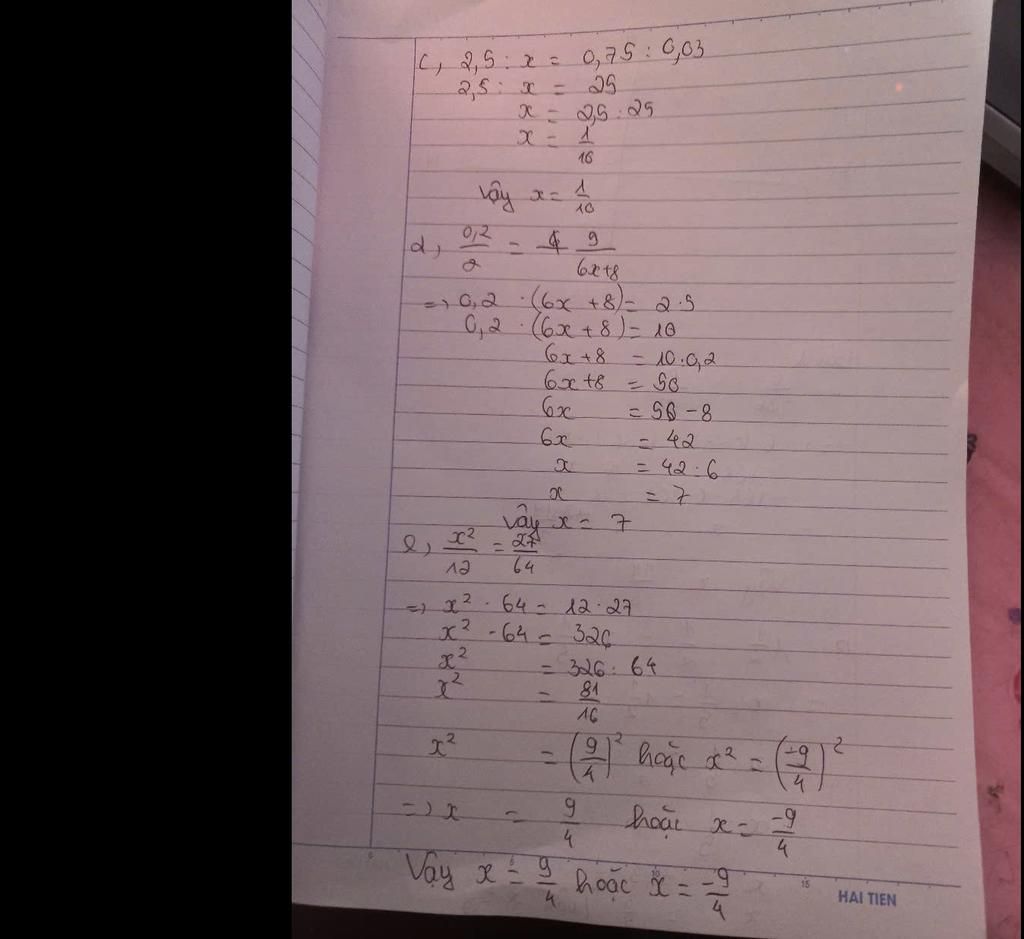 c, 2,5 : x = 0,75 : 0,03
2,5 : x = 25
x = 2,5 : 25
x = 1/10
Vậy x = 1/10
d, 0,2/2 = 9/(6x+8)
=> 0,2 · (6x + 8) = 2·5
0,2 · (6x + 8) = 10
6x + 8 = 10 · 0,2
6x + 8 = 50
6x = 50 - 8
6x = 42
x = 42 : 6
x = 7
Vậy x = 7
e, x²/12 = 27/64
=> x² · 64 = 12 · 27
x² · 64 = 326
x² = 326 : 64
x² = 81/16
x² = (9/4)² hoặc x² = (-9/4)²
=> x = 9/4 hoặc x = -9/4
Vậy x = 9/4 hoặc x = -9/4
15
HAI TIEN